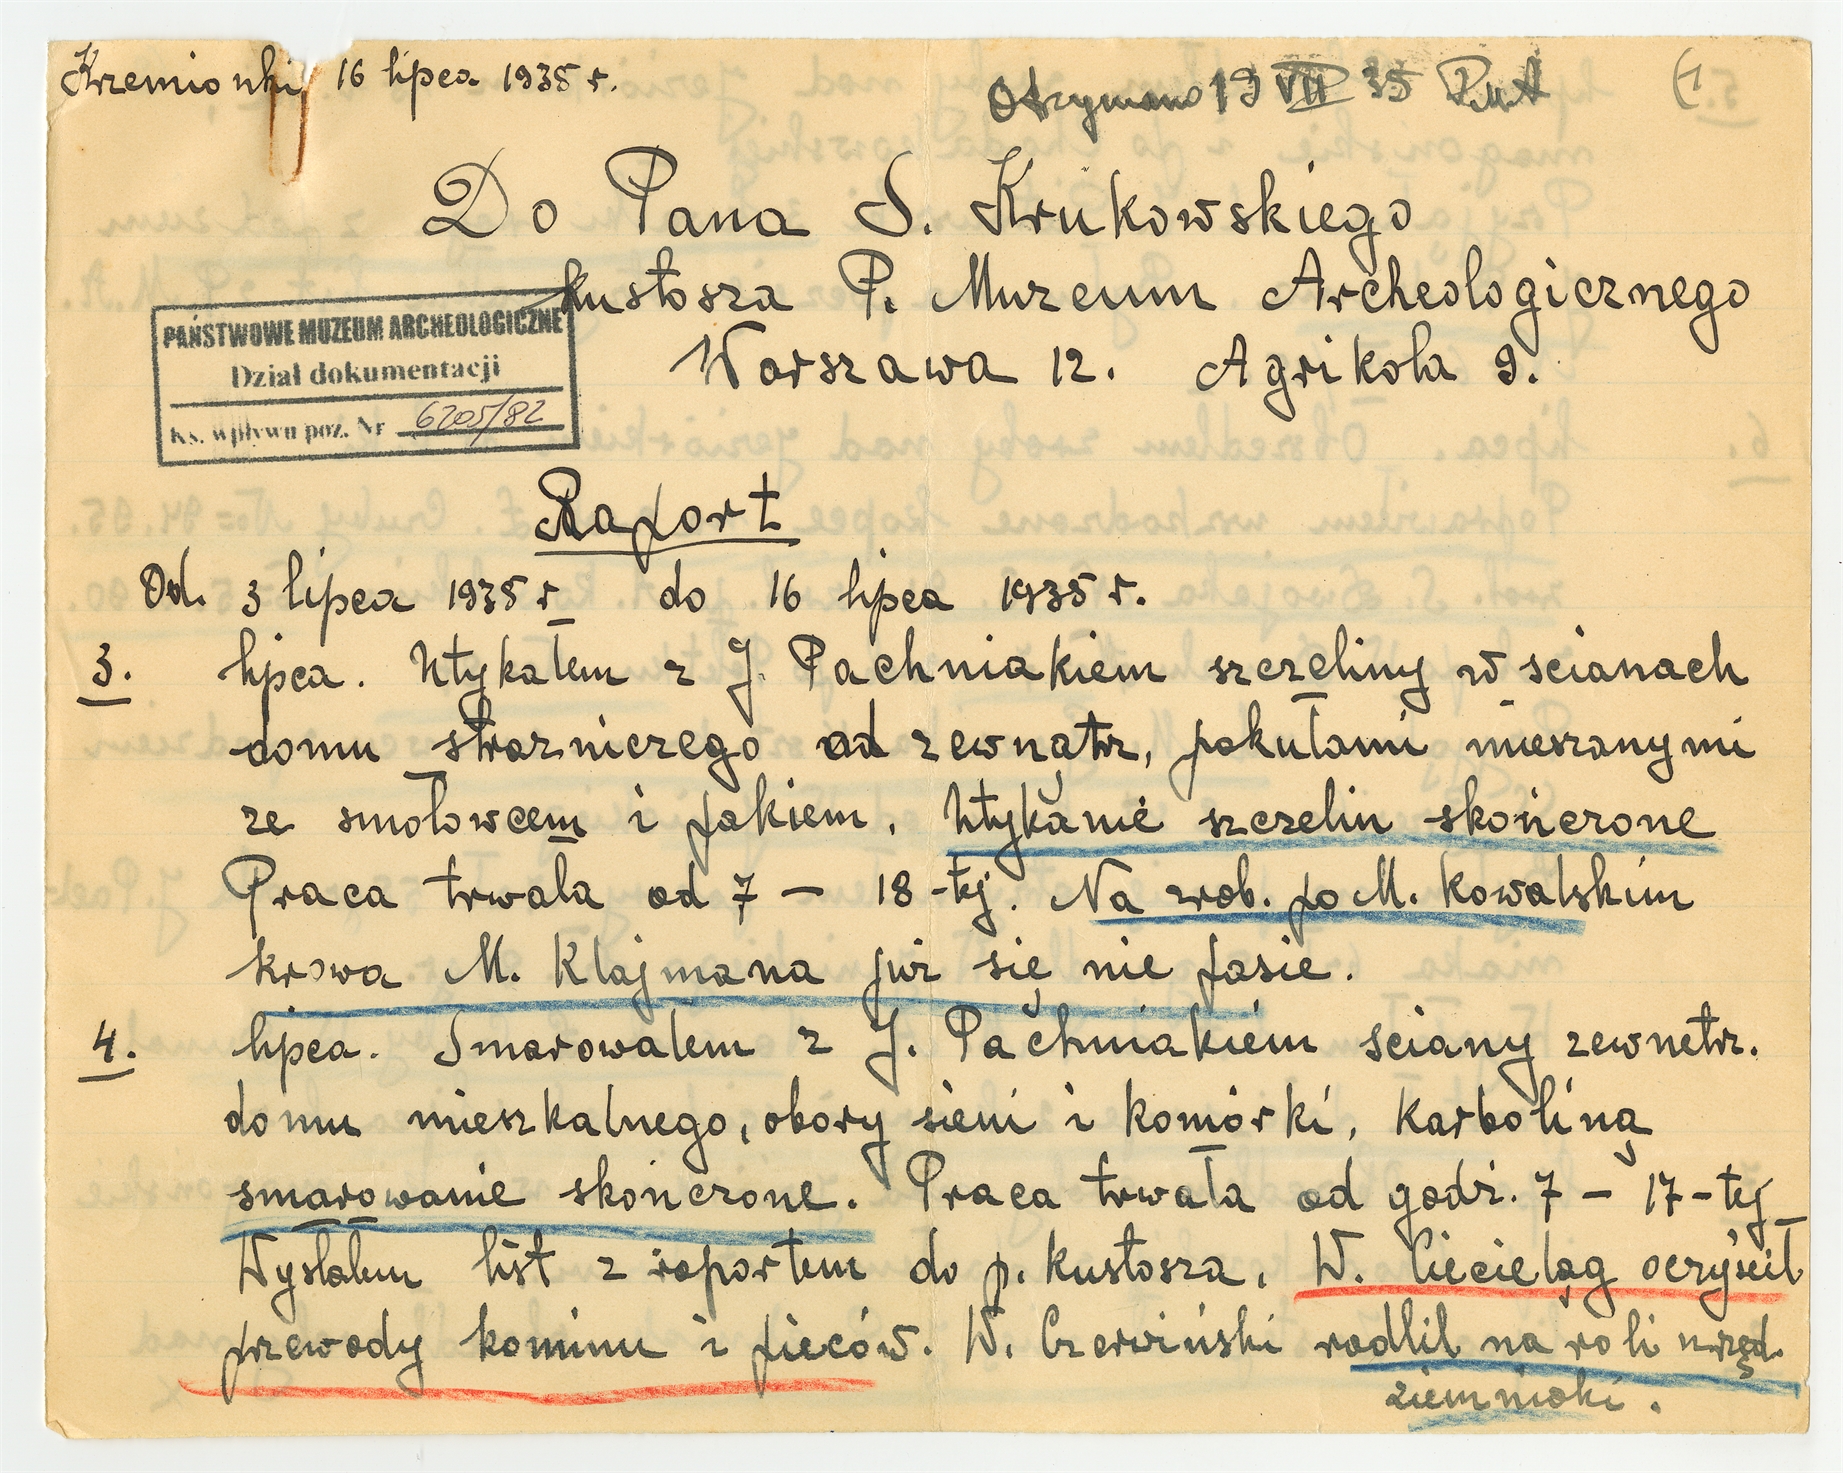 Krzemionki 16 lipca 1935 r.
Otrzymano 19 VII 35 PMA
Do Pana S. Krukowskiego
kustosza P. Muzeum Archeologicznego
Warszawa 12. Agrikola 9.
PAŃSTWOWE MUZEUM ARCHEOLOGICZNE
Dział dokumentacji
Ks. wpływu poz. Nr 6205/82
Raport
Od. 3 lipca 1935 r do 16 lipca 1935 r.
3. lipca. Utykałem z J. Pachniakiem szczeliny w scianach
domu strazniczego od zewnątrz, pokułami mieszanymi
ze smołowcem i pakiem. Utykanie szczelin skończone
Praca trwała od 7 – 18-tej. Na zrob. po M. Kowalskim
krowa M. Klajmana już się nie pasie.
4. lipca. Smarowałem z J. Pachniakiem sciany zewnetrz.
domu mieszkalnego, obory sieni i komórki, karboliną
smarowanie skończone. Praca trwała od godz. 7 – 17-tej
Wysłałem list z raportem do p. kustosza. W. Cieciełąg oczyścił
przewody kominu i pieców. W. Czerwiński radlił na roli urzęd.
ziemniaki.